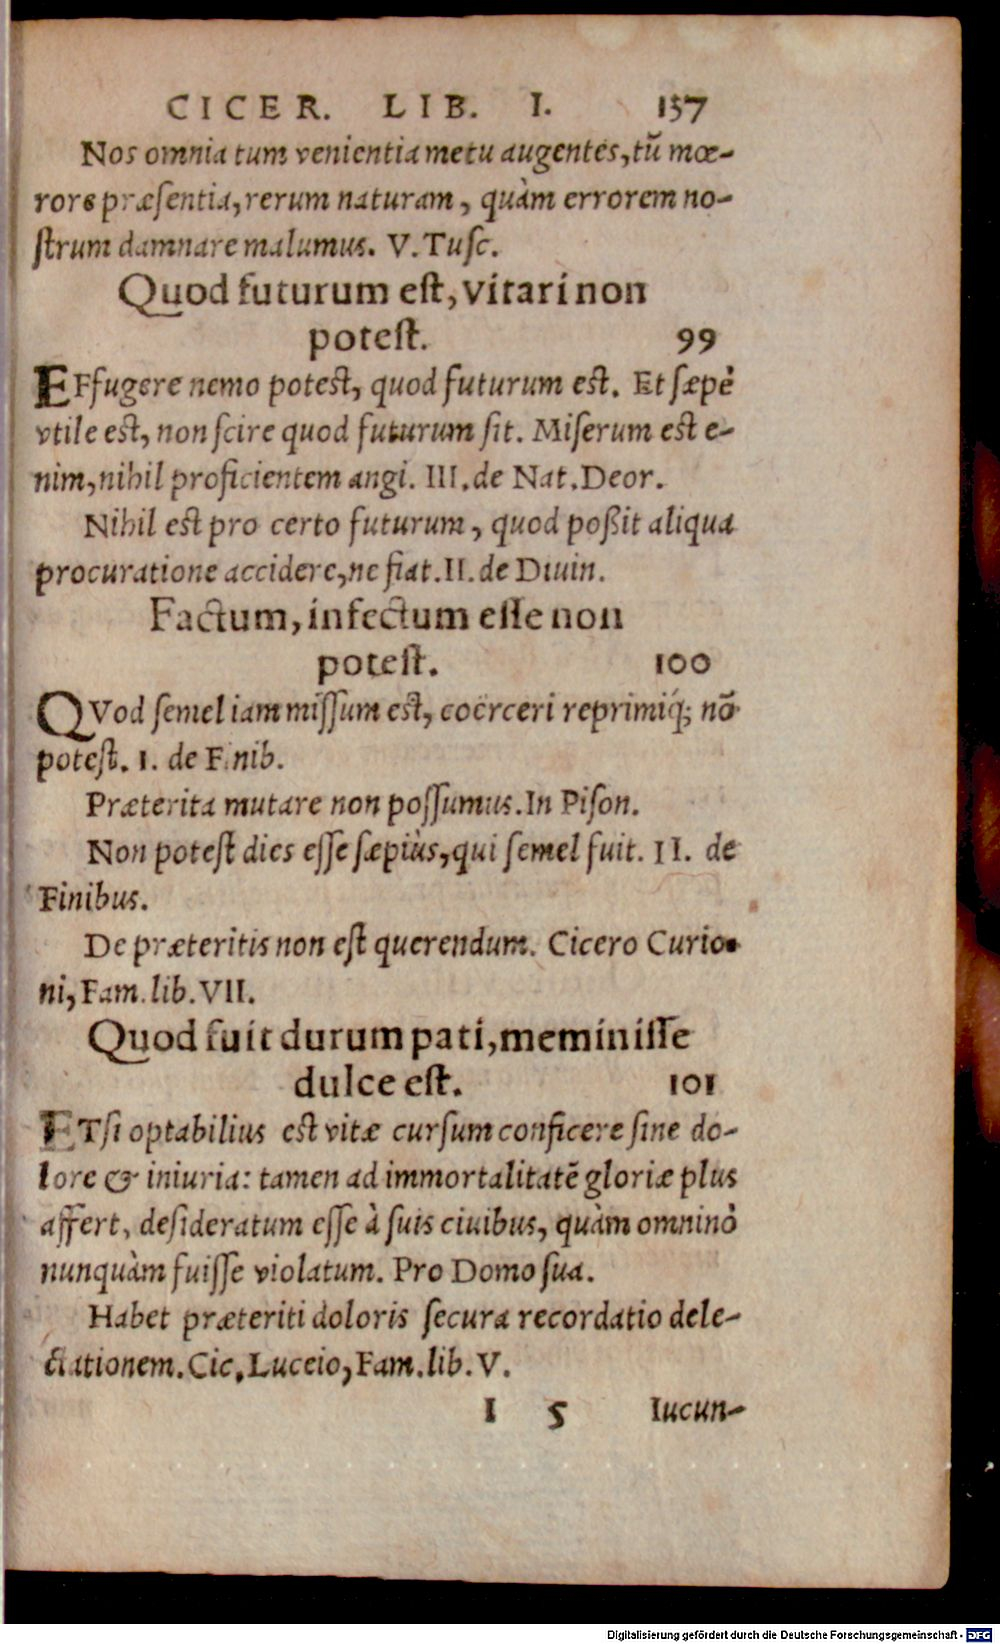 CICER. LIB. I. 137
Nos omnia tum venientia metu augentes, tū mœ-
rore præsentia, rerum naturam, quàm errorem no-
strum damnare malumus. V. Tusc.
Quod futurum est, vitari non
potest. 99
EFfugere nemo potest, quod futurum est. Et sæpè
vtile est, non scire quod futurum sit. Miserum est e-
nim, nihil proficientem angi. III. de Nat. Deor.
Nihil est pro certo futurum, quod poßit aliqua
procuratione accidere, ne fiat. II. de Diuin.
Factum, infectum esse non
potest. 100
QVod semel iam missum est, coërceri reprimiq́; nō
potest. 1. de Finib.
Præterita mutare non possumus. In Pison.
Non potest dies esse sæpiùs, qui semel fuit. II. de
Finibus.
De præteritis non est querendum. Cicero Curio-
ni, Fam. lib. VII.
Quod fuit durum pati, meminisse
dulce est. 101
ETsi optabilius est vitæ cursum conficere sine do-
lore & iniuria: tamen ad immortalitatē gloriæ plus
affert, desideratum esse à suis ciuibus, quàm omninò
nunquàm fuisse violatum. Pro Domo sua.
Habet præteriti doloris secura recordatio dele-
ctationem. Cic. Luceio, Fam. lib. V.
I 5 Iucun-
Digitalisierung gefördert durch die Deutsche Forschungsgemeinschaft - DFG